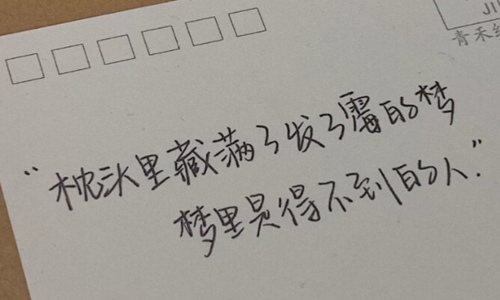 JI
青禾纟
“枕头里藏满了发了霉的梦
梦里是得不到的人”